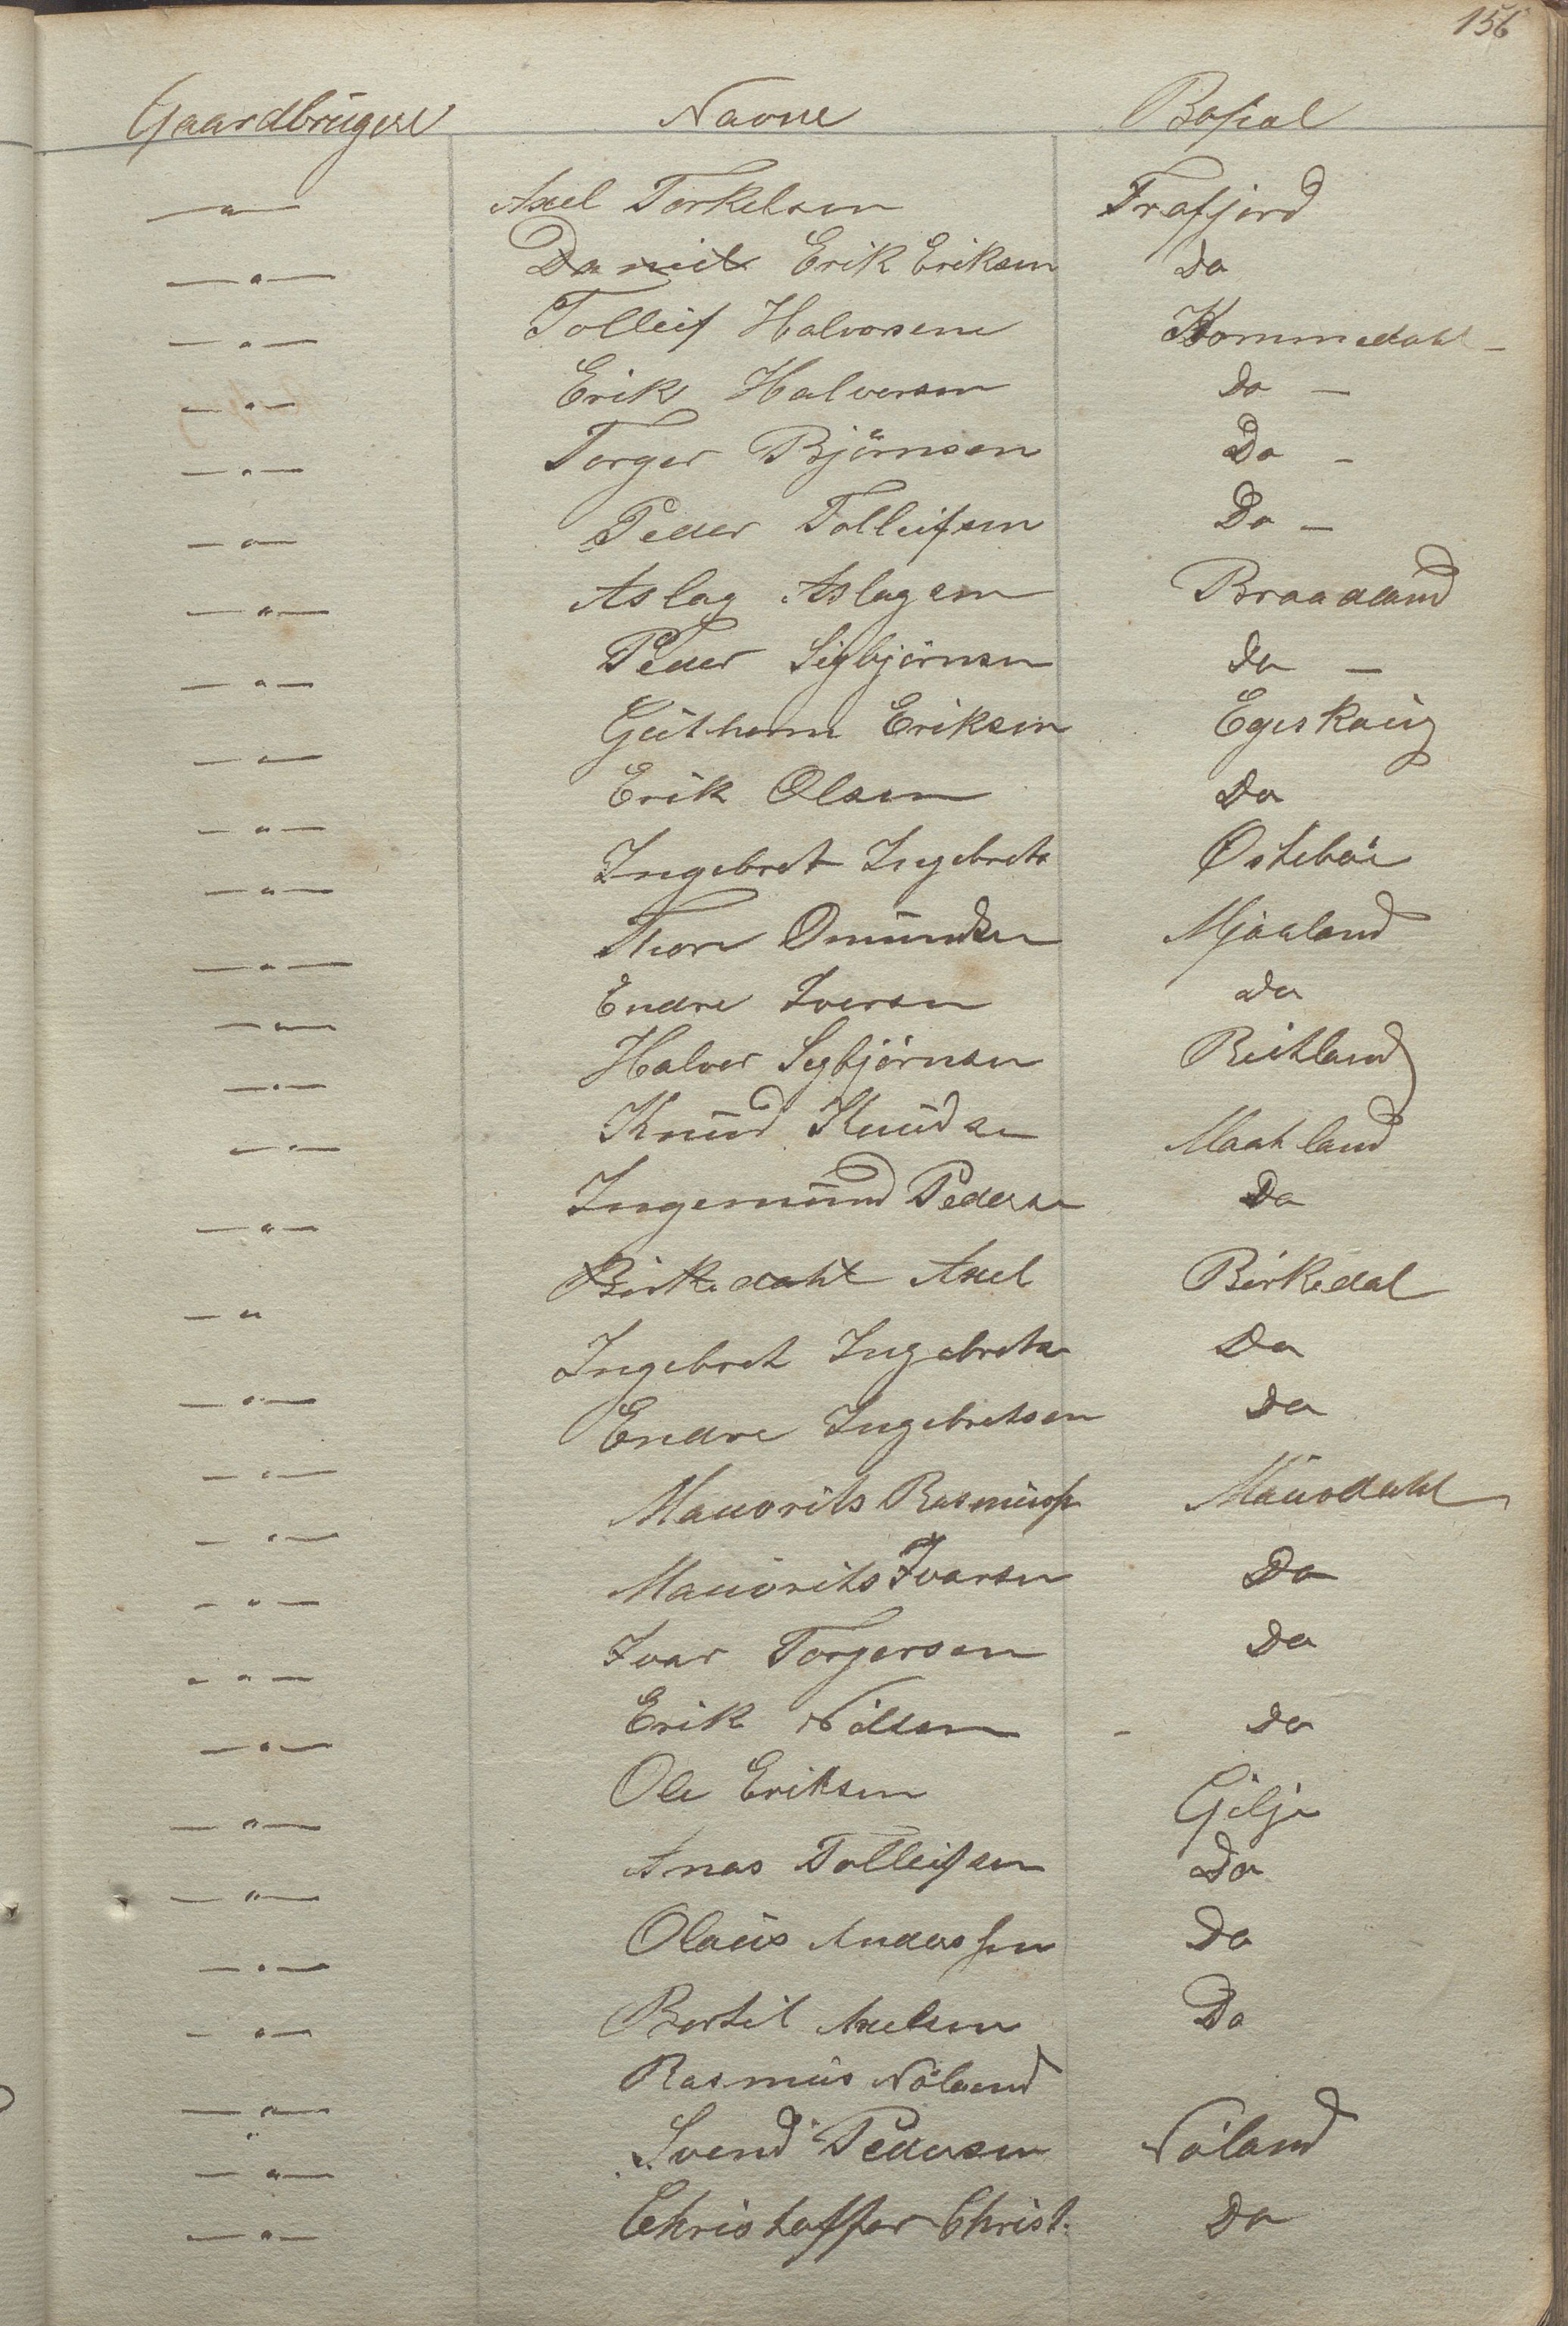 156
Gaardbrügere Navne Bopæl
—"— Axel Torkelsen Frafjord
—"— Daniel Erik Eriksen Do
—"— Tolleif Halvorsen Kommedahl —
—"— Erik Halvorsen Do —
—"— Torger Björnsen Do —
—"— Peder Tolleifsen Do —
—"— Aslag Aslagsen Braadland
—"— Peder Sigbjörnsen Do —
—"— Güthorm Eriksen Egeskoüg
—"— Erik Olsen Do
—"— Ingebret Ingebrets Østeböe
—"— Thore Omündsen Mjaaland
—"— Endre Iversen Do
—"— Halvor Segbjörnsen
—"— Knüd Knüdsen Maahland
—"— Ingemünd Pedersen Do
—"— Birkedahl Axel Birkedal
—"— Ingebret Ingebretsen Do
—"— Endre Ingebretsen Do
—"— Mauorits Rasmüss Maüodahl
—"— Mauorits Ivarsen Do
—"— Ivar Torgersen Do
—"— Erik Nilsen - Do
—"— Ole Eriksen Gilje
—"— Anas Tolleifsen Do
—"— Olaüs Anderssen Do
—"— Bertil Axelsen Do
—"— Rasmüs Nöland
—"— Svend Pedersen Nöland
—"— Christoffer Christ. Do